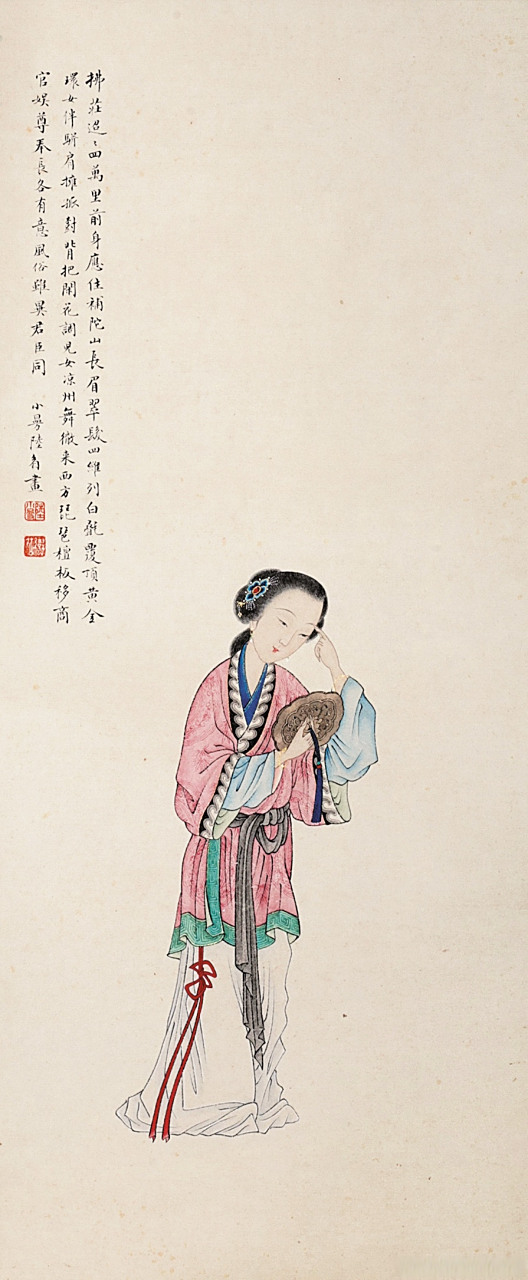 拂莊迢〻四萬里前身應住補陀山長眉翠髮四維列白氎覆頂黃金
環女伴駢肩擁孤對背把閒花調兒女涼州舞徹來西方琵琶檀板移商
官娛尊奉長各有意風俗雖異君臣同 小曼陸眉畫